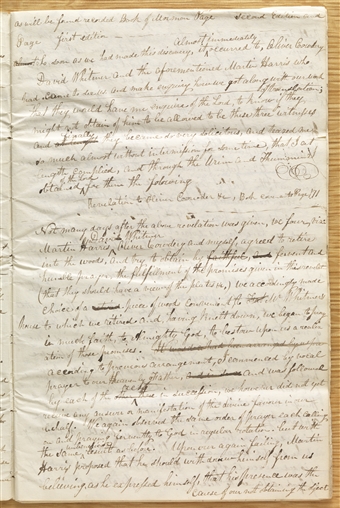 as will be found recorded Book of Mormon Page Second Edition and
Page first edition
Almost immediately
as soon as we had made this discovery, it occurred to Oliver Cowdery,
David Whitmer and the aforementioned Martin Harris who
had came to and make enquiry, how we got along with our work
of translation;
that they would have me enquire of the Lord, to know if they
might not obtain of him to be allowed to be these three witnesses
and they became so very solicitous, and teazed me
so much almost without intermission for some time, that I at
length complied, and through the Urim and Thummim I
of the Lord
obtained for them the following
Revelation to Oliver Cowdery &c, Book com to Page 171
Not many days after the above revelation was given, we four, viz:
David Whitmer
Martin Harris, Oliver Cowdery and myself, agreed to retire
into the woods, and try to obtain by and fervent and
humble prayer the fulfilment of the promises given in this revelation
(that they should have a view of the plates &c,) we accordingly made
choice of a piece of woods convenient to Mr Whitmer's
house to which we retired and having knelt down, we began to pray
in much faith, to Almighty God, to bestow upon us a realiz-
ation of those promises.
according to previous arrangement, I commenced by vocal
prayer to our Heavenly Father, and was followed
by each of the rest in succession, we however did not yet
receive any answer or manifestation of the divine favour in our
behalf. We again observed the same order of prayer each calling
on and praying fervently to God in regular rotation, but with
the same result as before. Upon our again failing, Martin
Harris proposed that he should withdraw himself from us
believing, as he expressed himself that his presence was the
Cause of our not obtaining the object